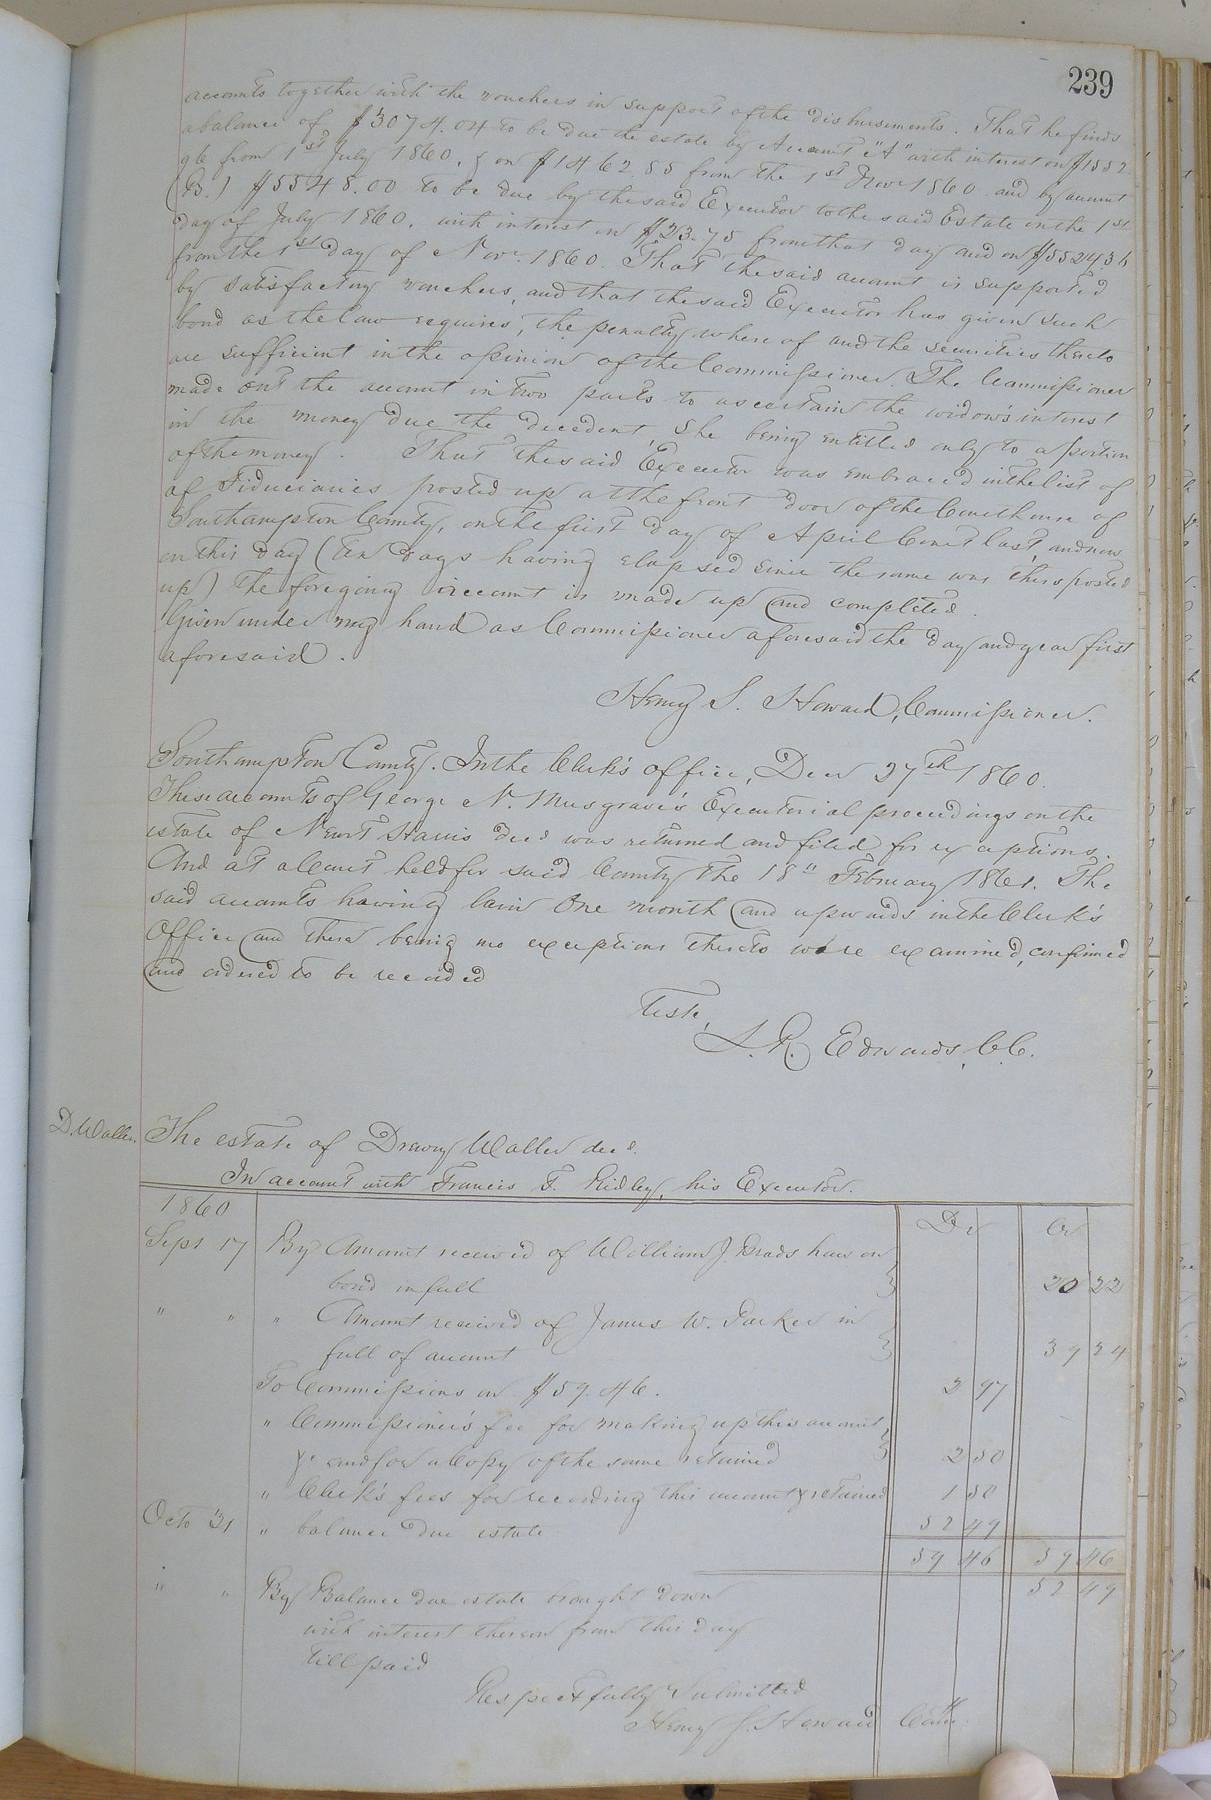 239
accounts together with the vouchers in support of the disbursements. That he finds
a balance of $3074.04 to be due the estate by Account "A" with interest on $1552.
96 from 1st July 1860, & on $1462.85 from the 1st Novr 1860 and by account
(B.) $5548.00 to be due by the said Executor to the said Estate on the 1st
day of July 1860, with interest on $23.75 from that day and on $5524.36
from the 1st day of Novr. 1860. That the said account is supported
by satisfactory vouchers, and that the said Executor has given such
bond as the law requires, the penalty where of and the securities thereto
are sufficient in the opinion of the Commissioner. The Commissioner
made out the account in two parts to ascertain the widow's interest
in the money due the decedent, She being entitled only to a portion
of the money. That the said Executor was embraced in the list of
of Fiduciaries posted up at the front door of the Courthouse of
Southampton County, on the first day of April Court last, and now
on this day (ten days having elapsed since the same was thus posted
up) the foregoing account is made up and completed.
Given under my hand as Commissioner aforesaid the day and year first
aforesaid.
Henry S. Howard, Commissioner.
Southampton County. In the Clerk's office, Decr 27th 1860.
These accounts of George N. Musgrave's Executorial proceedings on the
estate of Newt Harris decd was returned and filed for exceptions.
And at a Court held for said County the 18" February 1861. The
said accounts having lain One month and upwards in the Clerk's
Office and there being no exceptions thereto were examined, confirmed
and ordered to be recorded
Teste,
L. R. Edwards, C.C.
D. Waller. The estate of Drewry Waller decd.
In account with Francis T. Ridley, his Executor.
1860 Dr Cr
Sept 17 By Amount received of William J. Bradshaw on
bond in full 20 22
" " " Amount received of James W. Parker in
full of account 39 24
To Commissions on $59.46. 2 97
" Commissioner's fee for making up this account
&c and for a Copy of the same retained 2 50
" Clerk's fees for recording this account & retained 1 50
Octo 31 " balance due estate 52 49
59 46 59 46
" " By Balance due estate brought down 52 49
with interest thereon from this day
till paid
Respectfully Submitted
Henry S. Howard Comr.